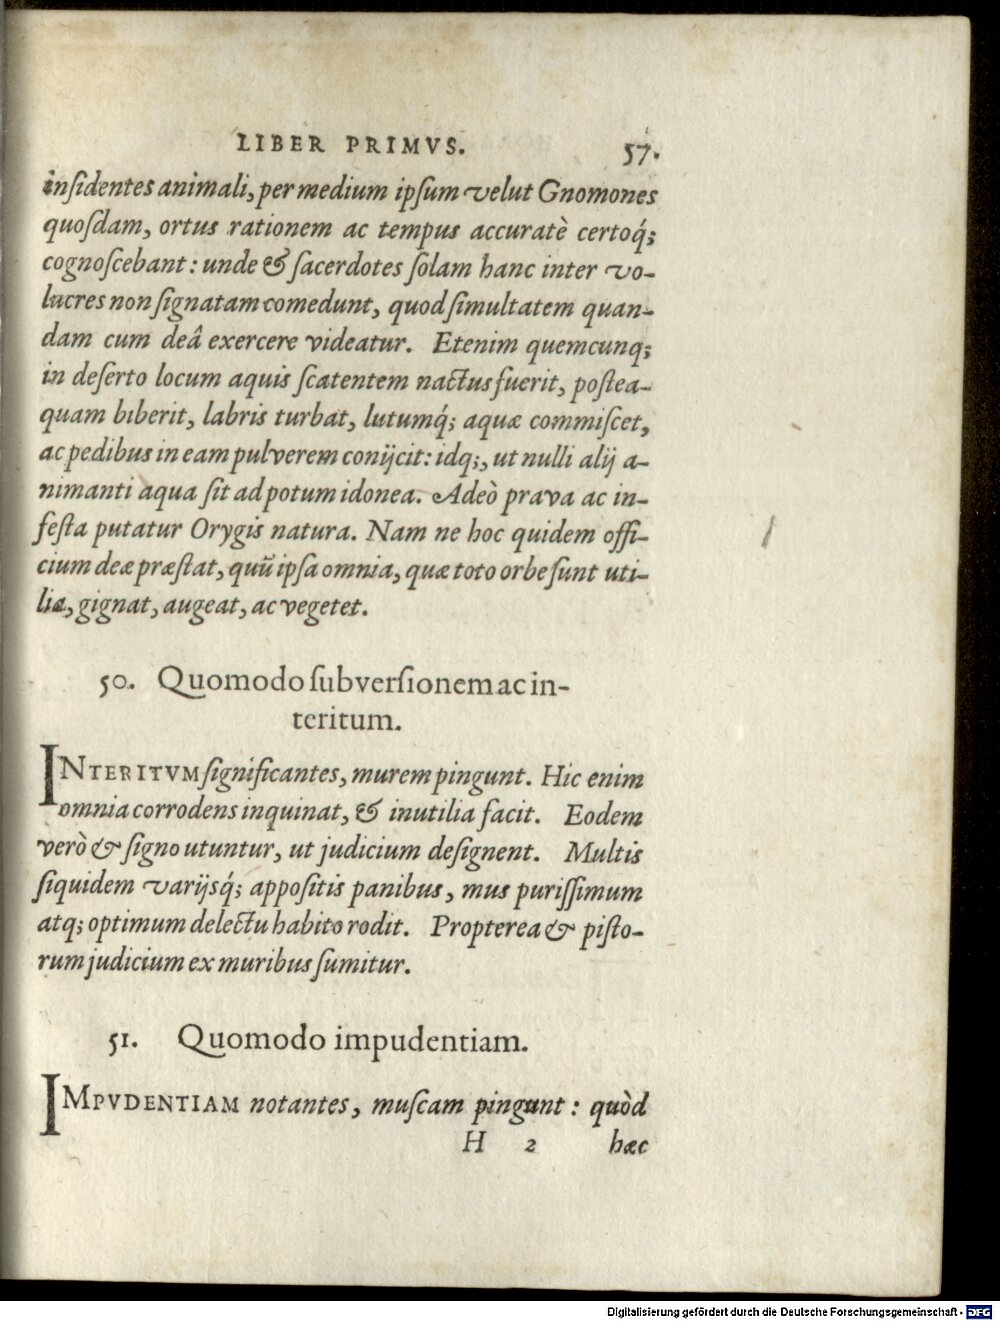 LIBER PRIMVS. 57.
insidentes animali, per medium ipsum velut Gnomones
quosdam, ortus rationem ac tempus accuratè certoq́;
cognoscebant: unde & sacerdotes solam hanc inter vo-
lucres non signatam comedunt, quod simultatem quan-
dam cum deâ exercere videatur. Etenim quemcunq;
in deserto locum aquis scatentem nactus fuerit, postea-
quam biberit, labris turbat, lutumq́; aquæ commiscet,
ac pedibus in eam pulverem conijcit: idq;, ut nulli alij a-
nimanti aqua sit ad potum idonea. Adeò prava ac in-
festa putatur Orygis natura. Nam ne hoc quidem offi-
cium deæ præstat, quũ ipsa omnia, quæ toto orbe sunt uti-
lia, gignat, augeat, ac vegetet.
50. Quomodo subversionem ac in-
teritum.
INTERITVM significantes, murem pingunt. Hic enim
omnia corrodens inquinat, & inutilia facit. Eodem
verò & signo utuntur, ut judicium designent. Multis
siquidem varijsq́; appositis panibus, mus purissimum
atq; optimum delectu habito rodit. Propterea & pisto-
rum judicium ex muribus sumitur.
51. Quomodo impudentiam.
IMPVDENTIAM notantes, muscam pingunt: quòd
H 2 hæc
Digitalisierung gefördert durch die Deutsche Forschungsgemeinschaft - DFG